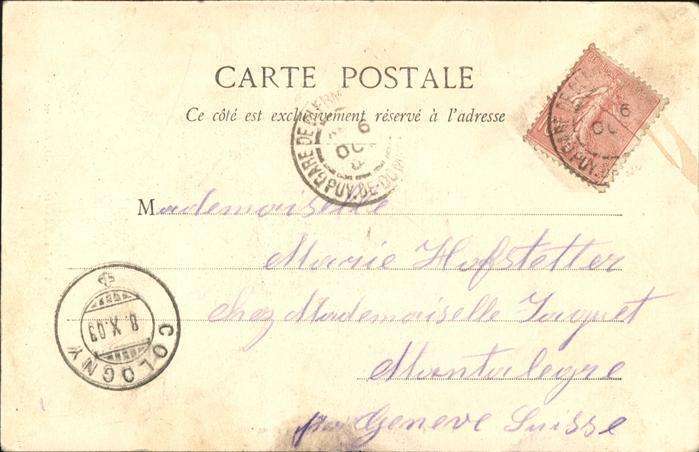 CARTE POSTALE
Ce côté est exclusivement réservé à l'adresse
GARE DE CLERM
6
OC
PUY-DE-DOME
6
OC
Mademoiselle
Marie Hofstetter
chez Mademoiselle Jaquet
Montalegre
par Geneve Suisse
COLOGNY
8.X.03